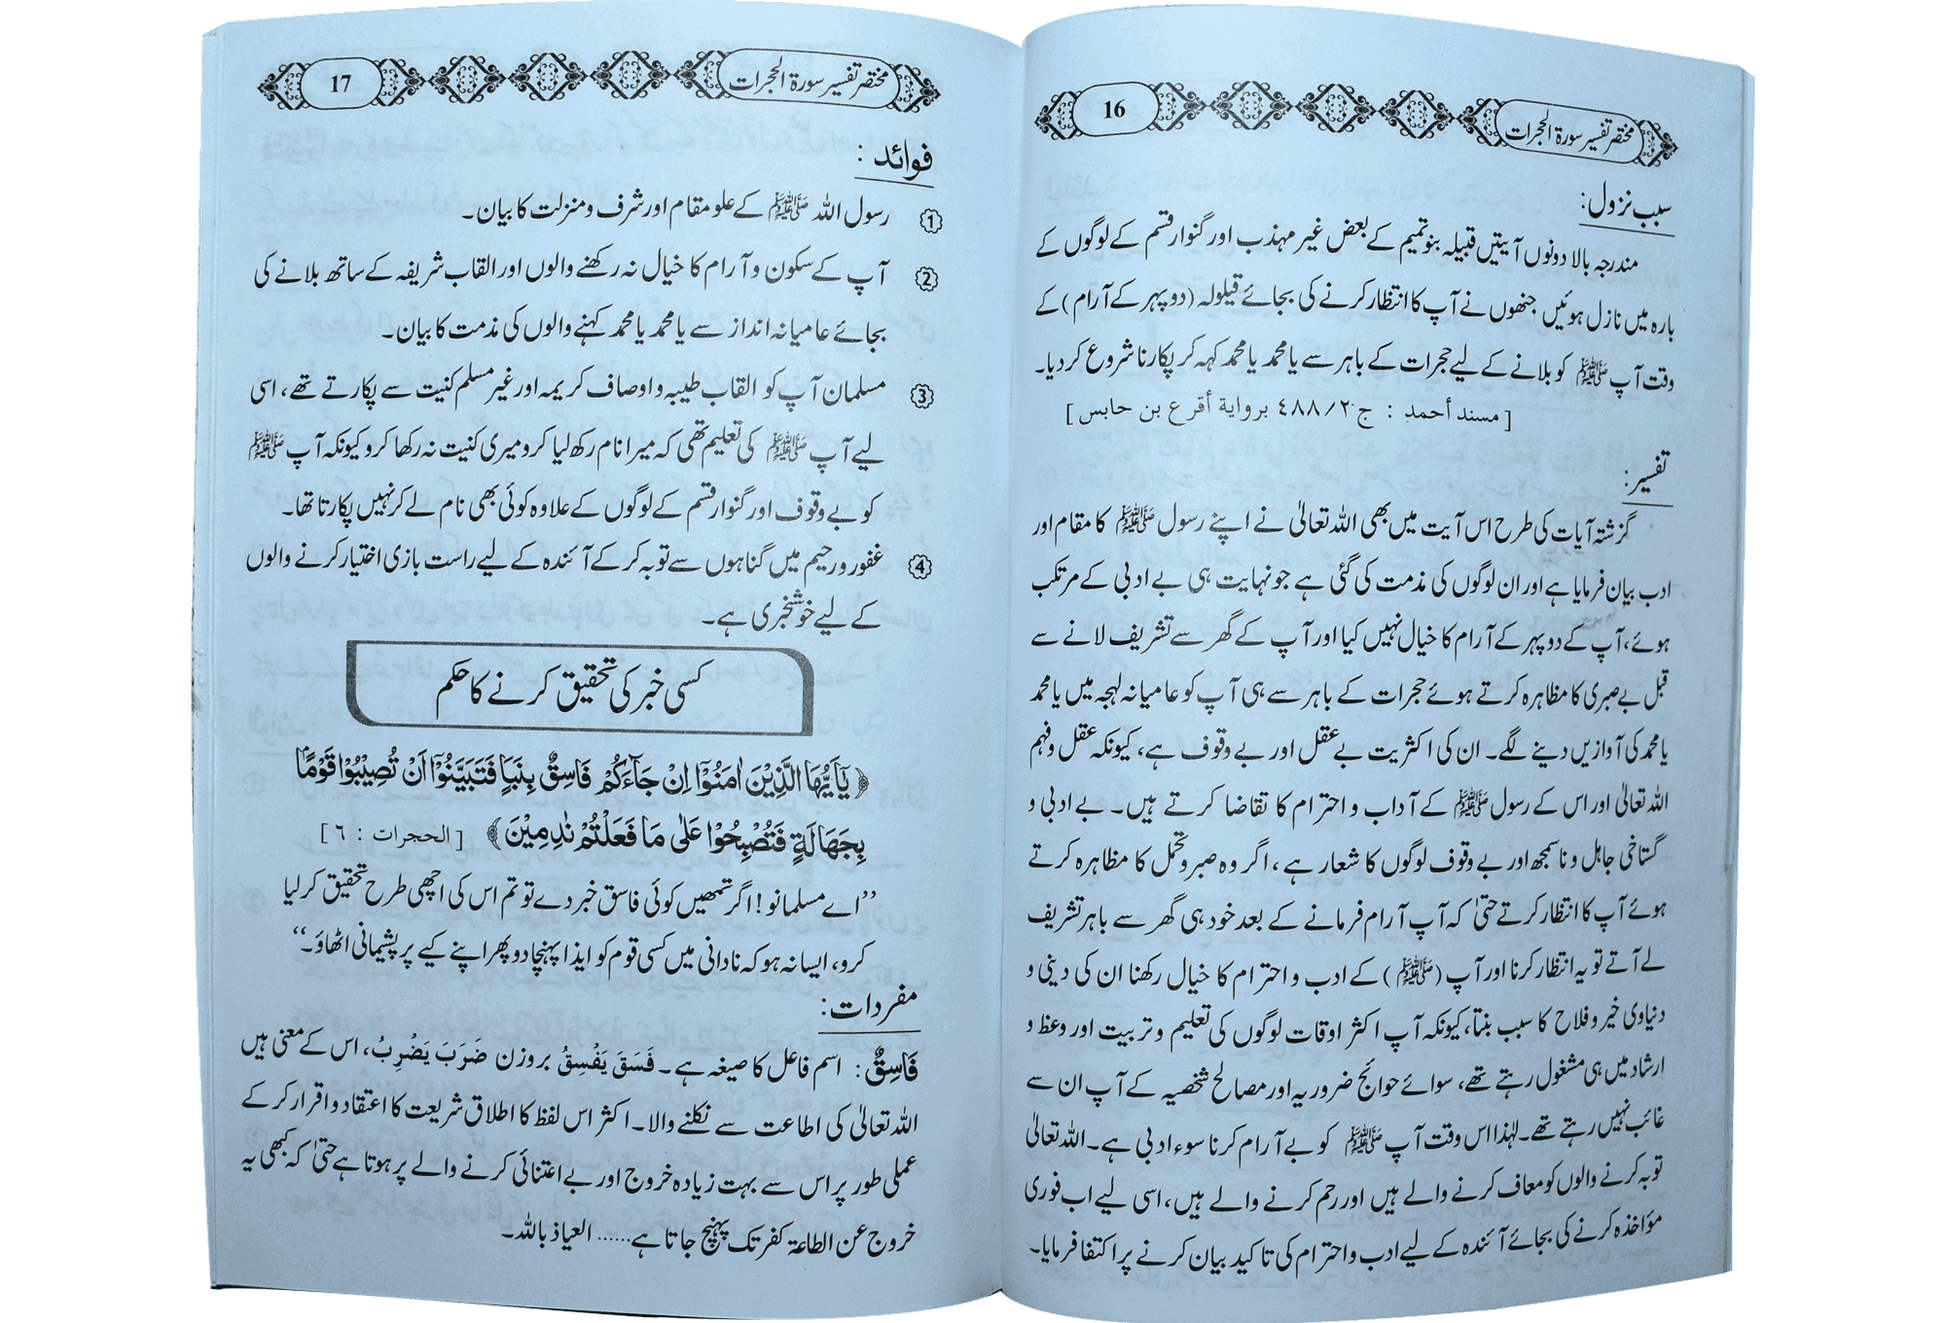 مختصر تفسیر سورۃ الحجرات
16
سبب نزول:
مندرجہ بالا دونوں آیتیں قبیلہ بنو تمیم کے بعض غیر مہذب اور گنوار قسم کے لوگوں کے
بارہ میں نازل ہوئیں جنھوں نے آپ کا انتظار کرنے کی بجائے قیلولہ (دوپہر کے آرام) کے
وقت آپ ﷺ کو بلانے کے لیے حجرات کے باہر سے یا محمد یا محمد کہہ کر پکارنا شروع کر دیا۔
[مسند أحمد : ج ٤٨٨/٢ برواية أقرع بن حابس]
تفسیر:
گزشتہ آیات کی طرح اس آیت میں بھی اللہ تعالیٰ نے اپنے رسول ﷺ کا مقام اور
ادب بیان فرمایا ہے اور ان لوگوں کی مذمت کی گئی ہے جو نہایت ہی بے ادبی کے مرتکب
ہوئے، آپ کے دوپہر کے آرام کا خیال نہیں کیا اور آپ کے گھر سے تشریف لانے سے
قبل بے صبری کا مظاہرہ کرتے ہوئے حجرات کے باہر سے ہی آپ کو عامیانہ لہجہ میں یا محمد
یا محمد کی آوازیں دینے لگے۔ ان کی اکثریت بے عقل اور بے وقوف ہے، کیونکہ عقل و فہم
اللہ تعالیٰ اور اس کے رسول ﷺ کے آداب و احترام کا تقاضا کرتے ہیں۔ بے ادبی و
گستاخی جاہل و نا سمجھ اور بے وقوف لوگوں کا شعار ہے، اگر وہ صبر و تحمل کا مظاہرہ کرتے
ہوئے آپ کا انتظار کرتے حتیٰ کہ آپ آرام فرمانے کے بعد خود ہی گھر سے باہر تشریف
لے آتے تو یہ انتظار کرنا اور آپ (ﷺ) کے ادب و احترام کا خیال رکھنا ان کی دینی و
دنیاوی خیر و فلاح کا سبب بنتا، کیونکہ آپ اکثر اوقات لوگوں کی تعلیم و تربیت اور وعظ و
ارشاد میں ہی مشغول رہتے تھے، سوائے حوائج ضروریہ اور مصالح شخصیہ کے آپ ان سے
غائب نہیں رہتے تھے۔ لہٰذا اس وقت آپ ﷺ کو بے آرام کرنا سوء ادبی ہے۔ اللہ تعالیٰ
توبہ کرنے والوں کو معاف کرنے والے ہیں اور رحم کرنے والے ہیں، اسی لیے اب فوری
مؤاخذہ کرنے کی بجائے آئندہ کے لیے ادب و احترام کی تاکید بیان کرنے پر اکتفا فرمایا۔
مختصر تفسیر سورۃ الحجرات
17
فوائد:
① رسول اللہ ﷺ کے علو مقام اور شرف و منزلت کا بیان۔
② آپ کے سکون و آرام کا خیال نہ رکھنے والوں اور القاب شریفہ کے ساتھ بلانے کی
بجائے عامیانہ انداز سے یا محمد یا محمد کہنے والوں کی مذمت کا بیان۔
③ مسلمان آپ کو القاب طیبہ و اوصاف کریمہ اور غیر مسلم کنیت سے پکارتے تھے، اسی
لیے آپ ﷺ کی تعلیم تھی کہ میرا نام رکھ لیا کرو میری کنیت نہ رکھا کرو کیونکہ آپ ﷺ
کو بے وقوف اور گنوار قسم کے لوگوں کے علاوہ کوئی بھی نام لے کر نہیں پکارتا تھا۔
④ غفور و رحیم میں گناہوں سے توبہ کر کے آئندہ کے لیے راست بازی اختیار کرنے والوں
کے لیے خوشخبری ہے۔
کسی خبر کی تحقیق کرنے کا حکم
﴿يٰۤاَيُّهَا الَّذِيْنَ اٰمَنُوْۤا اِنْ جَآءَكُمْ فَاسِقٌۢ بِنَبَاٍ فَتَبَيَّنُوْۤا اَنْ تُصِيْبُوْا قَوْمًۢا
بِجَهَالَةٍ فَتُصْبِحُوْا عَلٰى مَا فَعَلْتُمْ نٰدِمِيْنَ﴾ [الحجرات : ٦]
’’اے مسلمانو! اگر تمھیں کوئی فاسق خبر دے تو تم اس کی اچھی طرح تحقیق کر لیا
کرو، ایسا نہ ہو کہ نادانی میں کسی قوم کو ایذا پہنچا دو پھر اپنے کیے پر پشیمانی اٹھاؤ۔‘‘
مفردات:
فَاسِقٌ: اسم فاعل کا صیغہ ہے۔ فَسَقَ يَفْسِقُ بروزن ضَرَبَ يَضْرِبُ، اس کے معنی ہیں
اللہ تعالیٰ کی اطاعت سے نکلنے والا۔ اکثر اس لفظ کا اطلاق شریعت کا اعتقاد و اقرار کر کے
عملی طور پر اس سے بہت زیادہ خروج اور بے اعتنائی کرنے والے پر ہوتا ہے حتیٰ کہ کبھی یہ
خروج عن الطاعۃ کفر تک پہنچ جاتا ہے...... العیاذ باللہ۔